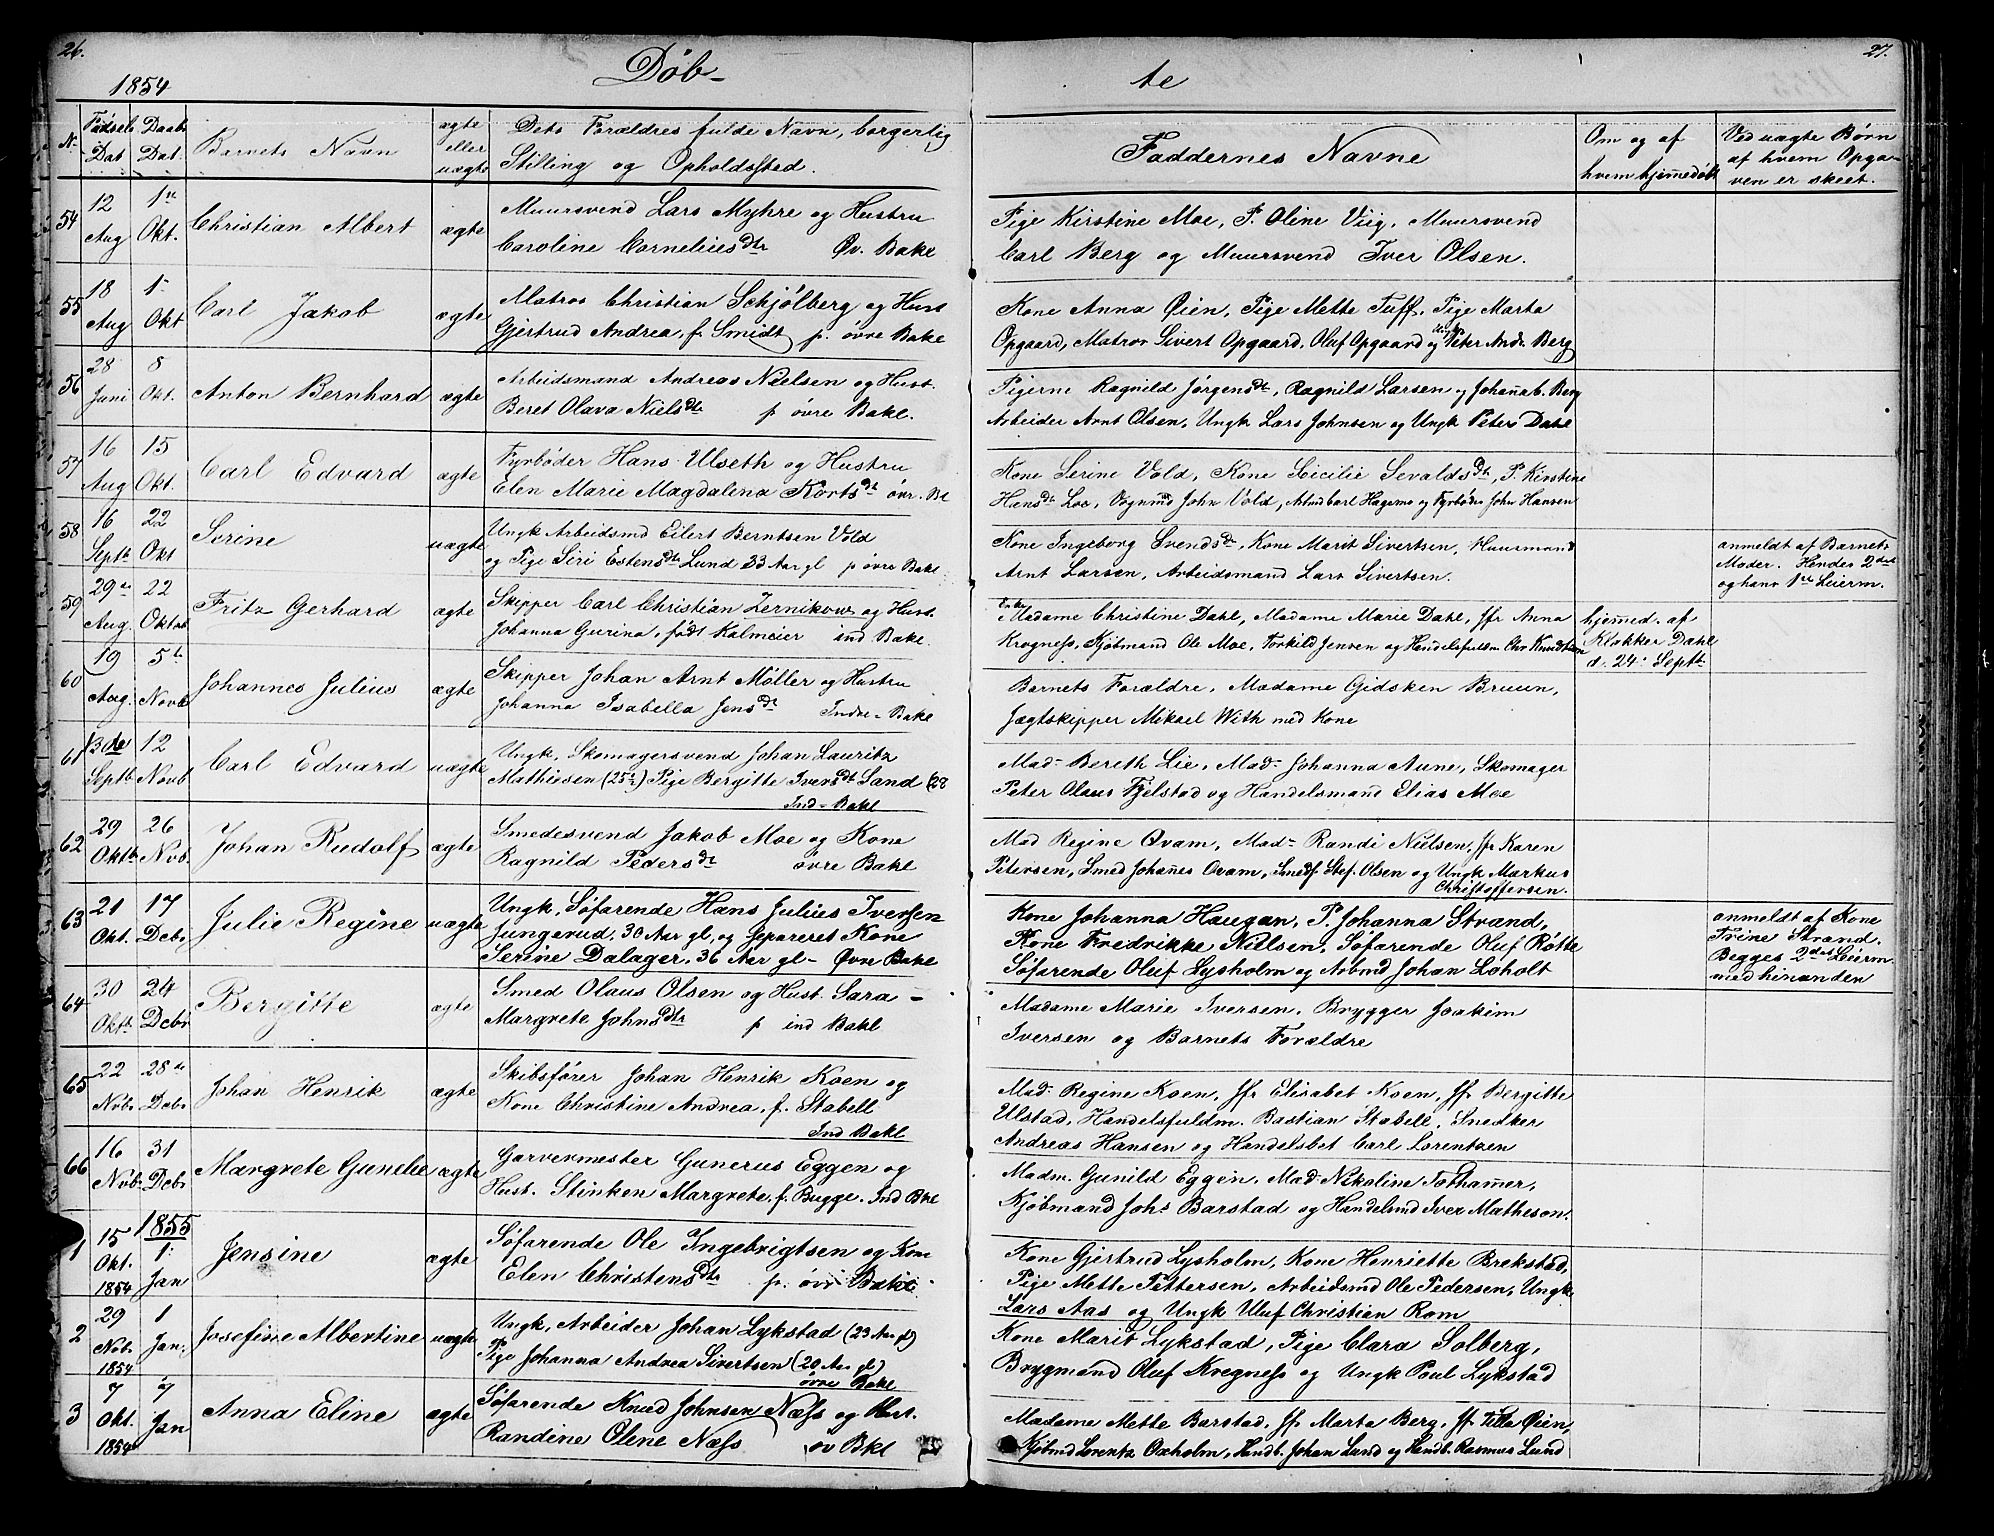 26.
27.
Døb-
te
1854
N.
Fødsels Dat
Daabs Dat.
Barnets Navn
ægte eller uægte
Dets Forældres fulde Navn, borgerlig
Stilling og Opholdssted.
Faddernes Navne
Om og af
hvem hjemedøbt
Ved uægte Børn
af hvem Opga-
ven er skeet.
54
12 Aug
1ste Okt.
Christian Albert
ægte
Muursvend Lars Myhre og Hustru
Caroline Corneliusdtr Øv. Bake
Pige Kirstine Moe, P. Oline Viig, Muursvend
Carl Berg og Muursvend Iver Olsen.
55
18 Aug
1 Okt
Carl Jakob
ægte
Matros Christian Schjølberg og Hust
Gjertrud Andrea, f. Smidt p. øvre Bakl
Kone Anna Øien, Pige Mette Tuff, Pige Marta
Opgaard, Matros Sivert Opgaard, Oluf Opgaard og Ungk Peter Andr. Berg
56
28 Juni
8 Okt.
Anton Bernhard
ægte
Arbeidsmand Andreas Nielsen og Hust.
Beret Olava Nielsdtr p øvre Bakl.
Pigerne Ragnild Jørgensdt, Ragnild Larsen og Johanna b. Berg
Arbeider Arnt Olsen, Ungk Lars Johnsen og Ungk Peter Dahl
57
16 Aug
15 Okt.
Carl Edvard
ægte
Fyrbøder Hans Ulseth og Hustru
Elen Marie Magdalena Kortsdt øvr. Bl
Kone Serine Vold, Kone Seicilie Sevaldsdt, P. Kirstine
Hansdt Loe, Vognmd John Vold, Arbmd Carl Hagemo og Fyrbøder John Hansen
58
16 Septb
22 Okt
Serine
uægte
Ungk Arbeidsmd Eilert Berntsen Vold
og Pige Siri Estensdt Lund 33 Aar gl p øvre Bakl
Kone Ingeborg Svendsdt, Kone Marit Sivertsen, Huusmand
Arnt Larsen, Arbeidsmand Lars Sivertsen.
anmeldt af Barnets
Moder. Hendes 2det
og hans 1ste Leierm.
59
29de Aug.
22 Oktob
Fritz Gerhard
ægte
Skipper Carl Christian Zernikow og Hust.
Johanna Gurina, født Kalmeier ind Bakl.
Enke
Madame Christine Dahl, Madame Marie Dahl, Jfr Anna
Krogness, Kjøbmand Ole Moe, Torkild Jensen og Handelsfuldm Chr Knudtson
hjemed. af
Klokker Dahl
d. 24. Septb
60
19 Aug.
5te Novb
Johannes Julius
ægte
Skipper Johan Arnt Møller og Hustru
Johanna Isabella Jensdt Indre-Bakl
Barnets Forældre, Madame Gidsken Bruun,
Jægtskipper Mikael With med Kone
61
3de Septb
12 Novb
Carl Edvard
uægte
Ungk. Skomagersvend Johan Lauritz
Mathiesen (25½) Pige Bergitte Iversdt Sand (28
Ind-Bakl
Mad- Bereth Lie, Mad- Johanna Aune, Skomager
Peter Olaus Fjelstad og Handelsmand Elias Moe
62
29 Oktb
26 Nvb.
Johan Rudolf
ægte
Smedesvend Jakob Moe og Kone
Ragnild Pedersdt øvre Bakl
Mad Regine Qvam, Mad- Randi Nielsen, Jfr Karen
Petersen, Smed Johanes Qvam, Smedsv Stef. Olsen og Ungk Markus
Christoffersen.
63
21 Okt.
17 Debr
Julie Regine
uægte
Ungk. Søfarende Hans Julius Iversen
Jungerud, 30 Aar gl, og separeret Kone
Serine Dalager, 36 Aar gl- Øvre Bakl
Kone Johanna Haugan, P. Johanna Strand,
Kone Fredrikke Nielsen, Søfarende Oluf Røtte
Søfarende Oluf Lysholm og Arbmd Johan Loholt
anmeldt af Kone
Trine Strand.
Begges 2det Leierm.
med hinanden
64
30 Oktb
24 Debr
Bergitte
ægte
Smed Olaus Olsen og Hust. Sara-
Margrete Johnsdtr p ind Bakl
Madame Marie Iversen, Brygger Joakim
Iversen og Barnets Forældre
65
22 Nvbr
28de Debr
Johan Henrik
ægte
Skibsfører Johan Henrik Koen og
Kone Christine Andrea, f. Stabell
Ind Bakl
Mad- Regine Koen, Jfr Elisabet Koen, Jfr Bergitte
Ulstad, Handelsfuldm. Bastian Stabell, Snedker
Andreas Hansen og Handelsbet Carl Lorentzen
66
16 Nvb.
31 Debr
Margrete Gunelie
ægte
Garvermester Gunerus Eggen og
Hust. Stinken Margrete, f. Bugge. Ind Bkl
Madm. Gunild Eggen, Mad- Nikoline Tothamer,
Kjøbmand Johs Barstad og Handelsmd Iver Matheson.
1855
1
15 Okt. 1854
1. Jan
Jensine
ægte
Søfarende Ole Ingebrigtsen og Kone
Elen Christensdtr p. øvr Bakl
Kone Gjertrud Lysholm, Kone Henriette Brekstad,
Pige Mette Pettersen, Arbeidsmd Ole Pedersen, Ungk
Lars Aas og Ungk Uluf Christian Rom
2
29 Nvbr 1854
1 Jan.
Josefine Albertine
uægte
Ungk. Arbeider Johan Lykstad (23 Aar gl)
Pige Johanna Andrea Sivertsen (20 Aar gl)
øvre Bakl
Kone Marit Lykstad, Pige Clara Solberg,
Brygmand Oluf Kregness og Ungk Poul Lykstad
3
7 Okt. 1854
7 Jan
Anna Eline
ægte
Søfarende Knud Johnsen Næss og Hust.
Randine Olene Næss øv Bkl
Madame Mette Barstad, Jfr Marta Berg, Jfr Tilla Øien,
Kjøbmd Lorentz Oxholm, Handb. Johan Lund og Handb. Rasmus Lund